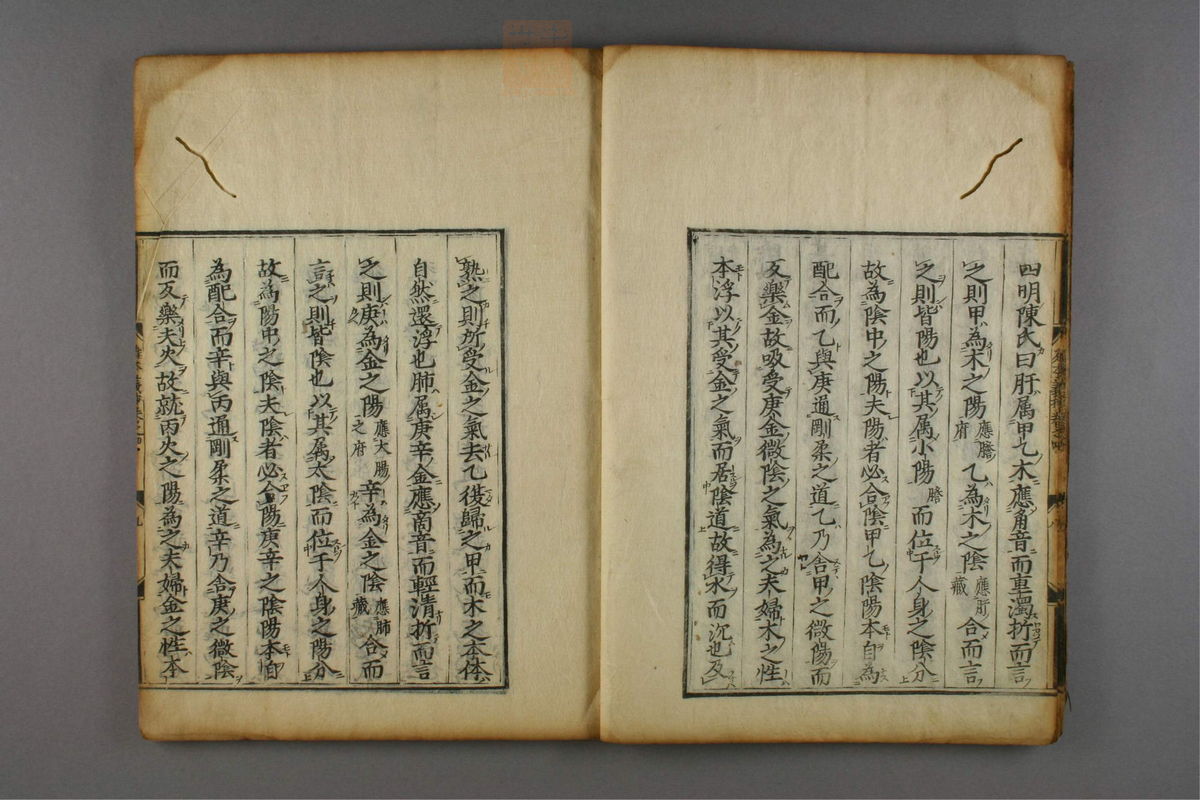 四明陳氏曰肝属甲乙木應角音而重濁折而言
之則甲為木之陽應膽府乙為木之陰應肝藏合而言
之則皆陽也以其属小陽膽而位于人身之陰分
故為陰中之陽夫陽者必合陰甲乙陰陽本自為
配合而乙與庚通剛柔之道乙乃合甲之微陽而
反樂金故吸受庚金微陰之氣為之夫婦木之性
本浮以其受金之氣而居陰道故得水而沉也及
熟之則所受金之氣去乙復歸之甲而木之本体
自然還浮也肺属庚辛金應商音而輕清折而言
之則庚為金之陽應大腸之府辛為金之陰應肺藏合而
言之則皆陰也以其属太陰而位于人身之陽分
故為陽中之陰夫陰者必合陽庚辛之陰陽本自
為配合而辛與丙通剛柔之道辛乃舍庚之微陰
而反樂夫火故就丙火之陽為之夫婦金之性本